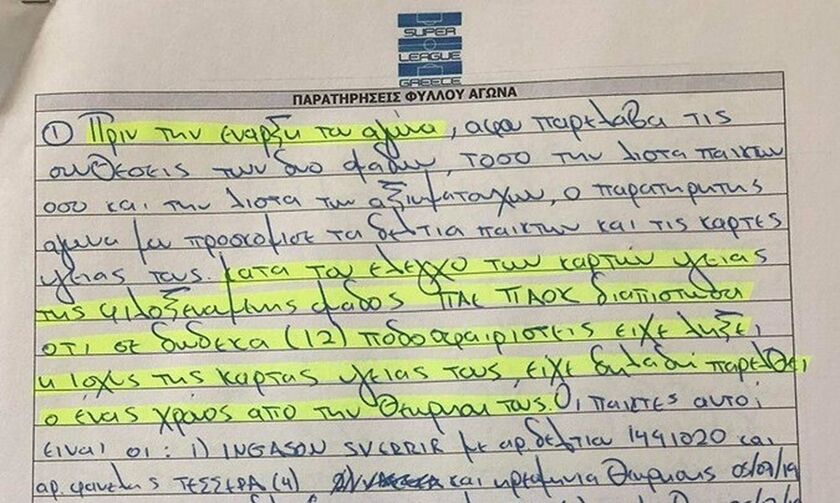 SUPER
LEAGUE
GREECE
ΠΑΡΑΤΗΡΗΣΕΙΣ ΦΥΛΛΟΥ ΑΓΩΝΑ
① Πριν την εναρξη του αγωνα, αφου παρελαβα τις
συνθεσεις των δυο φαδων, τοσο την λιστα παικτων
οσο και την λιστα των αξιωματουχων, ο παρατηρητης
αγωνα μου προσκομισε τα δελτια παικτων και τις καρτες
υγειας τους. Κατα τον ελεγχο των καρτών υγειας
της φιλοξενουμενης ομαδος ΠΑΕ ΠΑΟΚ διαπιστωθηκε
οτι σε δωδεκα (12) ποδοσφαιριστεις ειχε ληξει
η ισχυς της καρτας υγειας τους, ειχε δηλαδη παρελθει
ο ένας χρονος από την θεωρηση τους. Οι παικτες αυτοι
ειναι οι: 1) INGASON SVERRIR με αρ δελτιο 1441020 και
αρ. φανελας ΤΕΣΣΕΡΑ (4) και ημερομηνια θεωρησης 05/07/19